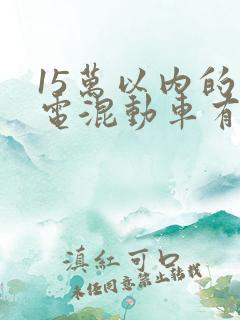 15萬以內的
電混動車有
滇紅可口
未经同意禁止转载